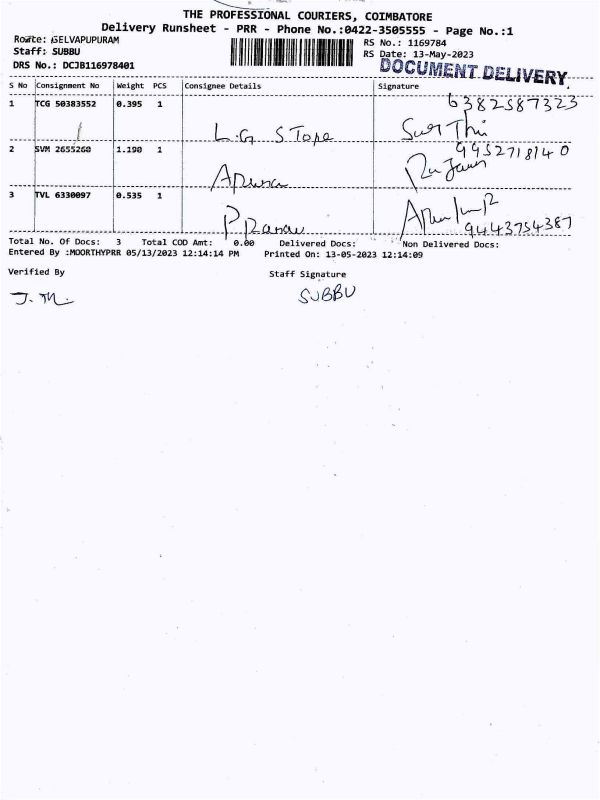 THE PROFESSIONAL COURIERS, COIMBATORE
Delivery Runsheet - PRR - Phone No.:0422-3505555 - Page No.:1
Route: SELVAPUPURAM
RS No.: 1169784
Staff: SUBBU
RS Date: 13-May-2023
DRS No.: DCJB116978401
DOCUMENT DELIVERY
S No Consignment No Weight PCS Consignee Details Signature
1 TCG 50383552 0.395 1 6382587323
L.G STope
2 SVM 2655260 1.190 1 9952718140
3 TVL 6330097 0.535 1
9443754387
Total No. Of Docs: 3 Total COD Amt: 0.00 Delivered Docs: Non Delivered Docs:
Entered By :MOORTHYPRR 05/13/2023 12:14:14 PM Printed On: 13-05-2023 12:14:09
Verified By Staff Signature
J. M. SUBBU